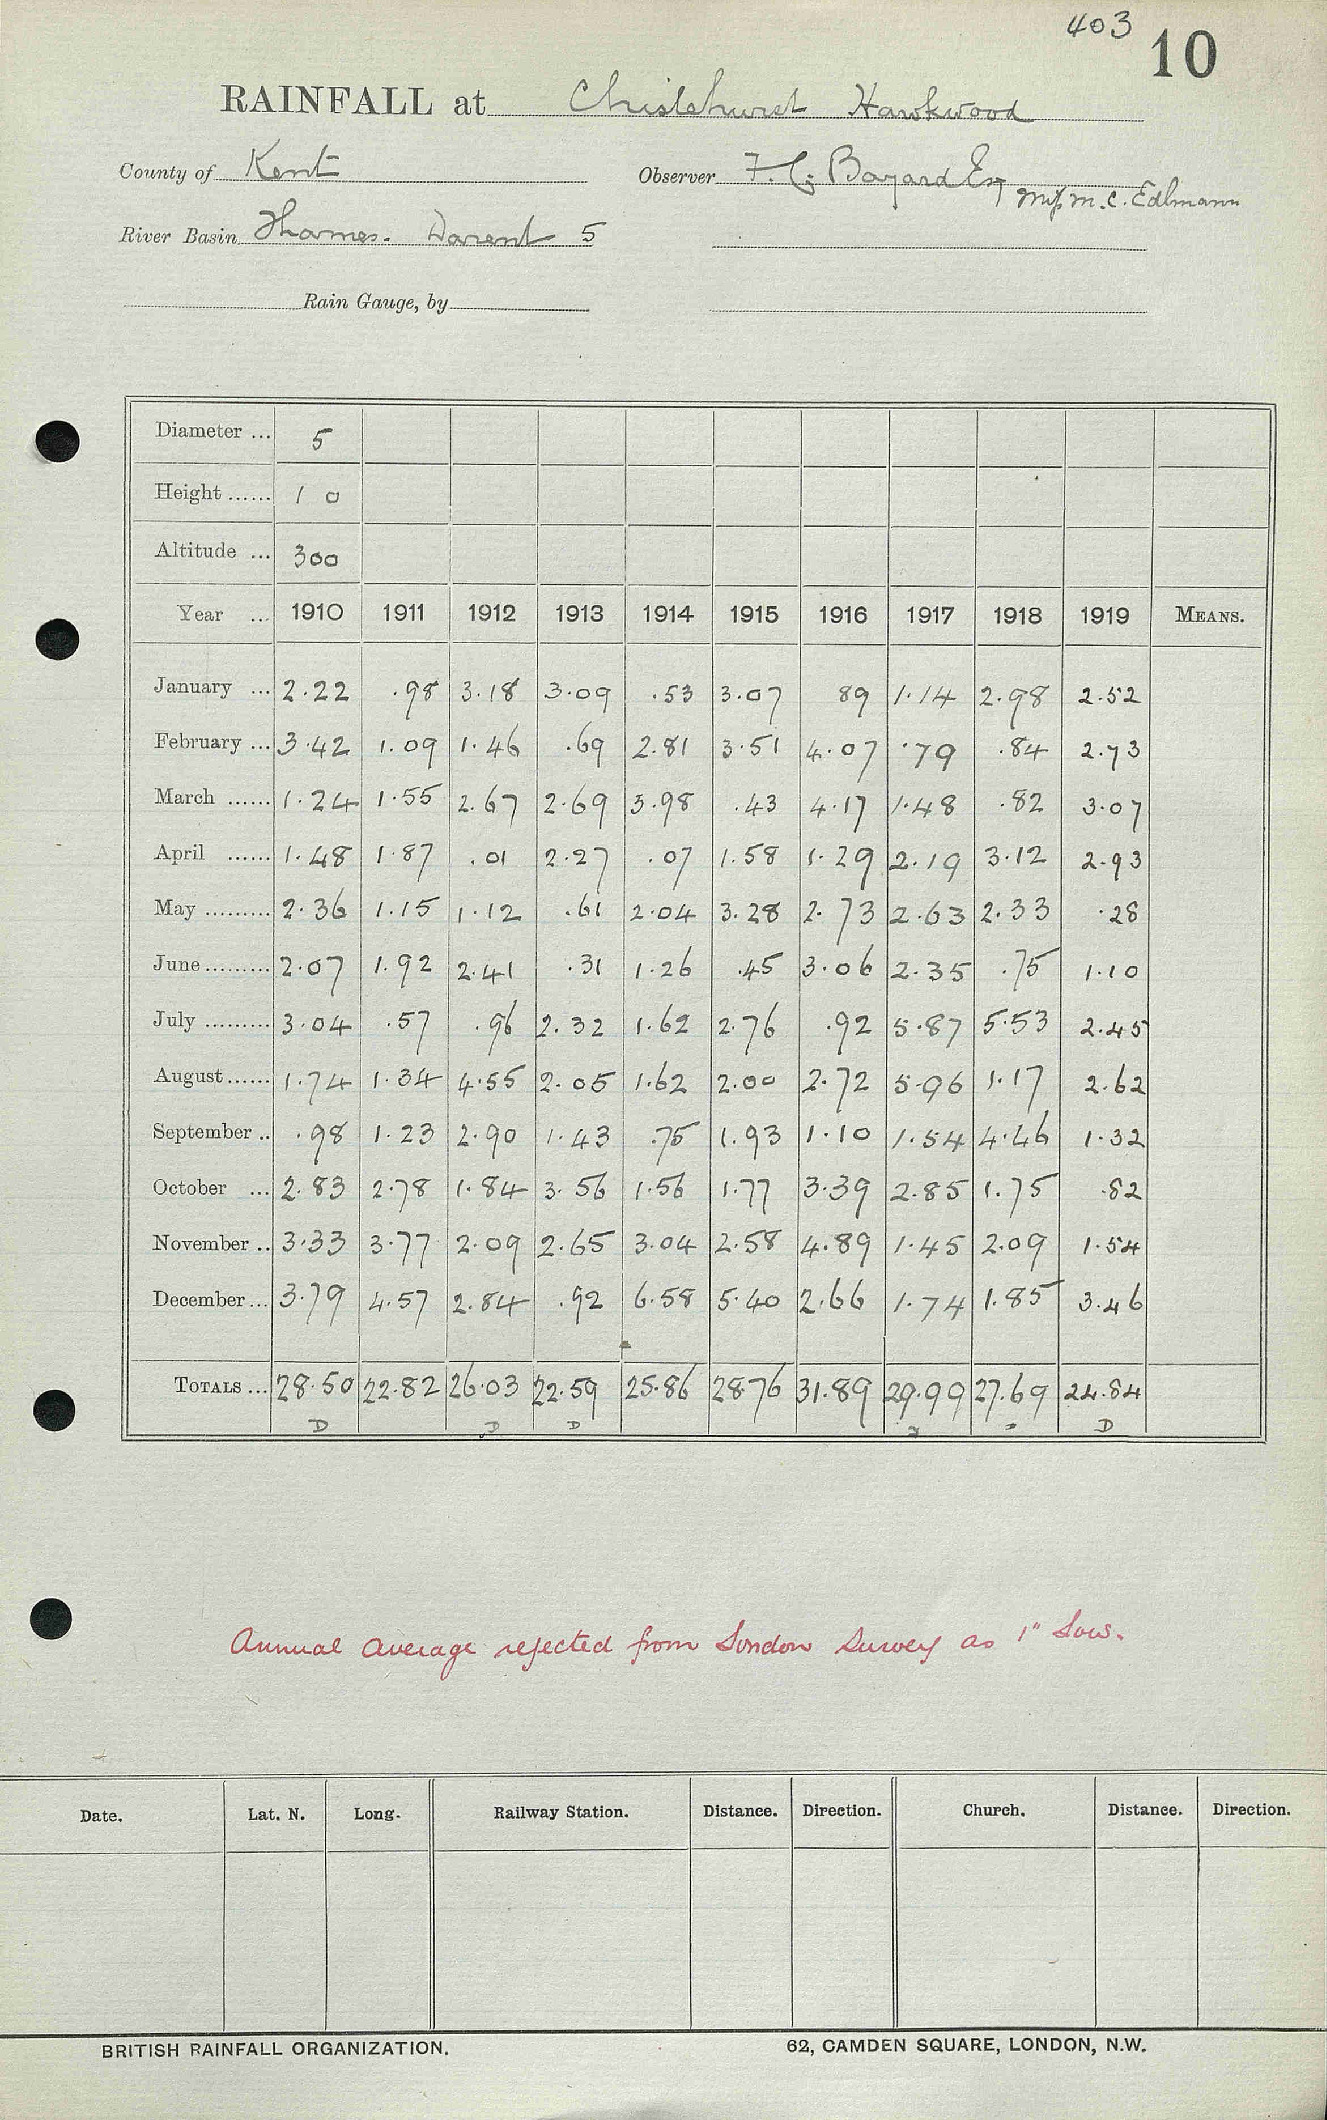 403 10
RAINFALL at Chislehurst Hawkwood
County of Kent Observer F. C. Bayard Esq
Miss M. C. Edlmann
River Basin Thames. Darent 5
Rain Gauge, by
Diameter ... 5
Height ...... 1 0
Altitude ... 300
Year ... 1910 1911 1912 1913 1914 1915 1916 1917 1918 1919 MEANS.
January ... 2.22 .98 3.18 3.09 .53 3.07 89 1.14 2.98 2.52
February ... 3.42 1.09 1.46 .69 2.81 3.51 4.07 .79 .84 2.73
March ...... 1.24 1.55 2.67 2.69 3.98 .43 4.17 1.48 .82 3.07
April ...... 1.48 1.87 .01 2.27 .07 1.58 1.29 2.19 3.12 2.93
May ......... 2.36 1.15 1.12 .61 2.04 3.28 2.73 2.63 2.33 .28
June ......... 2.07 1.92 2.41 .31 1.26 .45 3.06 2.35 .75 1.10
July ......... 3.04 .57 .96 2.32 1.62 2.76 .92 5.87 5.53 2.45
August ...... 1.74 1.34 4.55 2.05 1.62 2.00 2.72 5.96 1.17 2.62
September .. .98 1.23 2.90 1.43 .75 1.93 1.10 1.54 4.46 1.32
October ... 2.83 2.78 1.84 3.56 1.56 1.77 3.39 2.85 1.75 .82
November .. 3.33 3.77 2.09 2.65 3.04 2.58 4.89 1.45 2.09 1.54
December ... 3.79 4.57 2.84 .92 6.58 5.40 2.66 1.74 1.85 3.46
TOTALS ... 28.50 22.82 26.03 22.59 25.86 28.76 31.89 29.99 27.69 24.84
D D D D
Annual average rejected from London Survey as 1" low.
Date. Lat. N. Long. Railway Station. Distance. Direction. Church. Distance. Direction.
BRITISH RAINFALL ORGANIZATION. 62, CAMDEN SQUARE, LONDON, N.W.